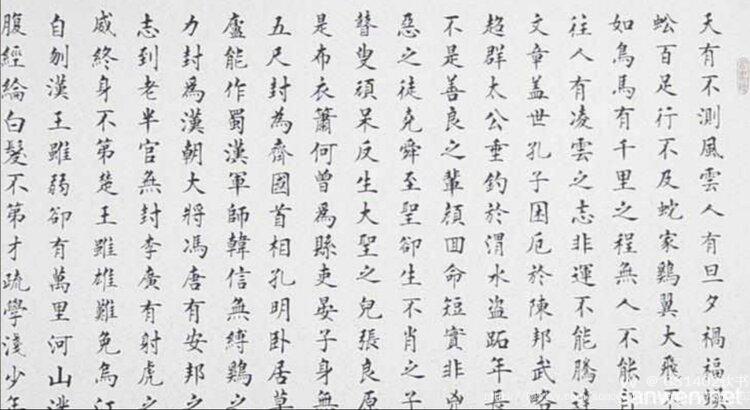 天有不測風雲人有旦夕禍福
蚣百足行不及蛇家鷄翼大飛
如鳥馬有千里之程無人不能
往人有凌雲之志非運不能騰
文章蓋世孔子困厄於陳邦武略
超群太公垂釣於渭水盗跖年
不是善良之輩顏回命短實非兇
惡之徒堯舜至聖卻生不肖之子
瞽叟頑呆反生大聖之兒張良原
是布衣蕭何曾爲縣吏晏子身無
五尺封爲齊國首相孔明卧居草
廬能作蜀漢軍師韓信無縛鷄之
力封爲漢朝大將馮唐有安邦之
志到老半官無封李廣有射虎之
威終身不第楚王雖雄難免烏江
自刎漢王雖弱卻有萬里河山
腹經綸白髮不第才疏學淺少年
sanwen.net